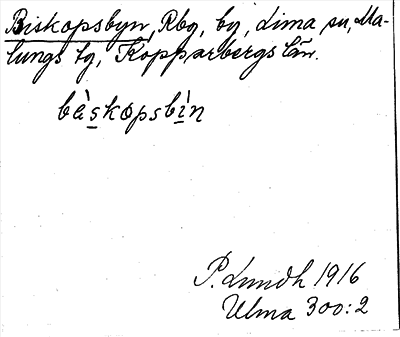 Biskopsbyn, Rbg, by, Lima sn, Ma-
lungs tg, Kopparbergs län.
bèskopsbìn
P. Lundh 1916
Ulma 300:2